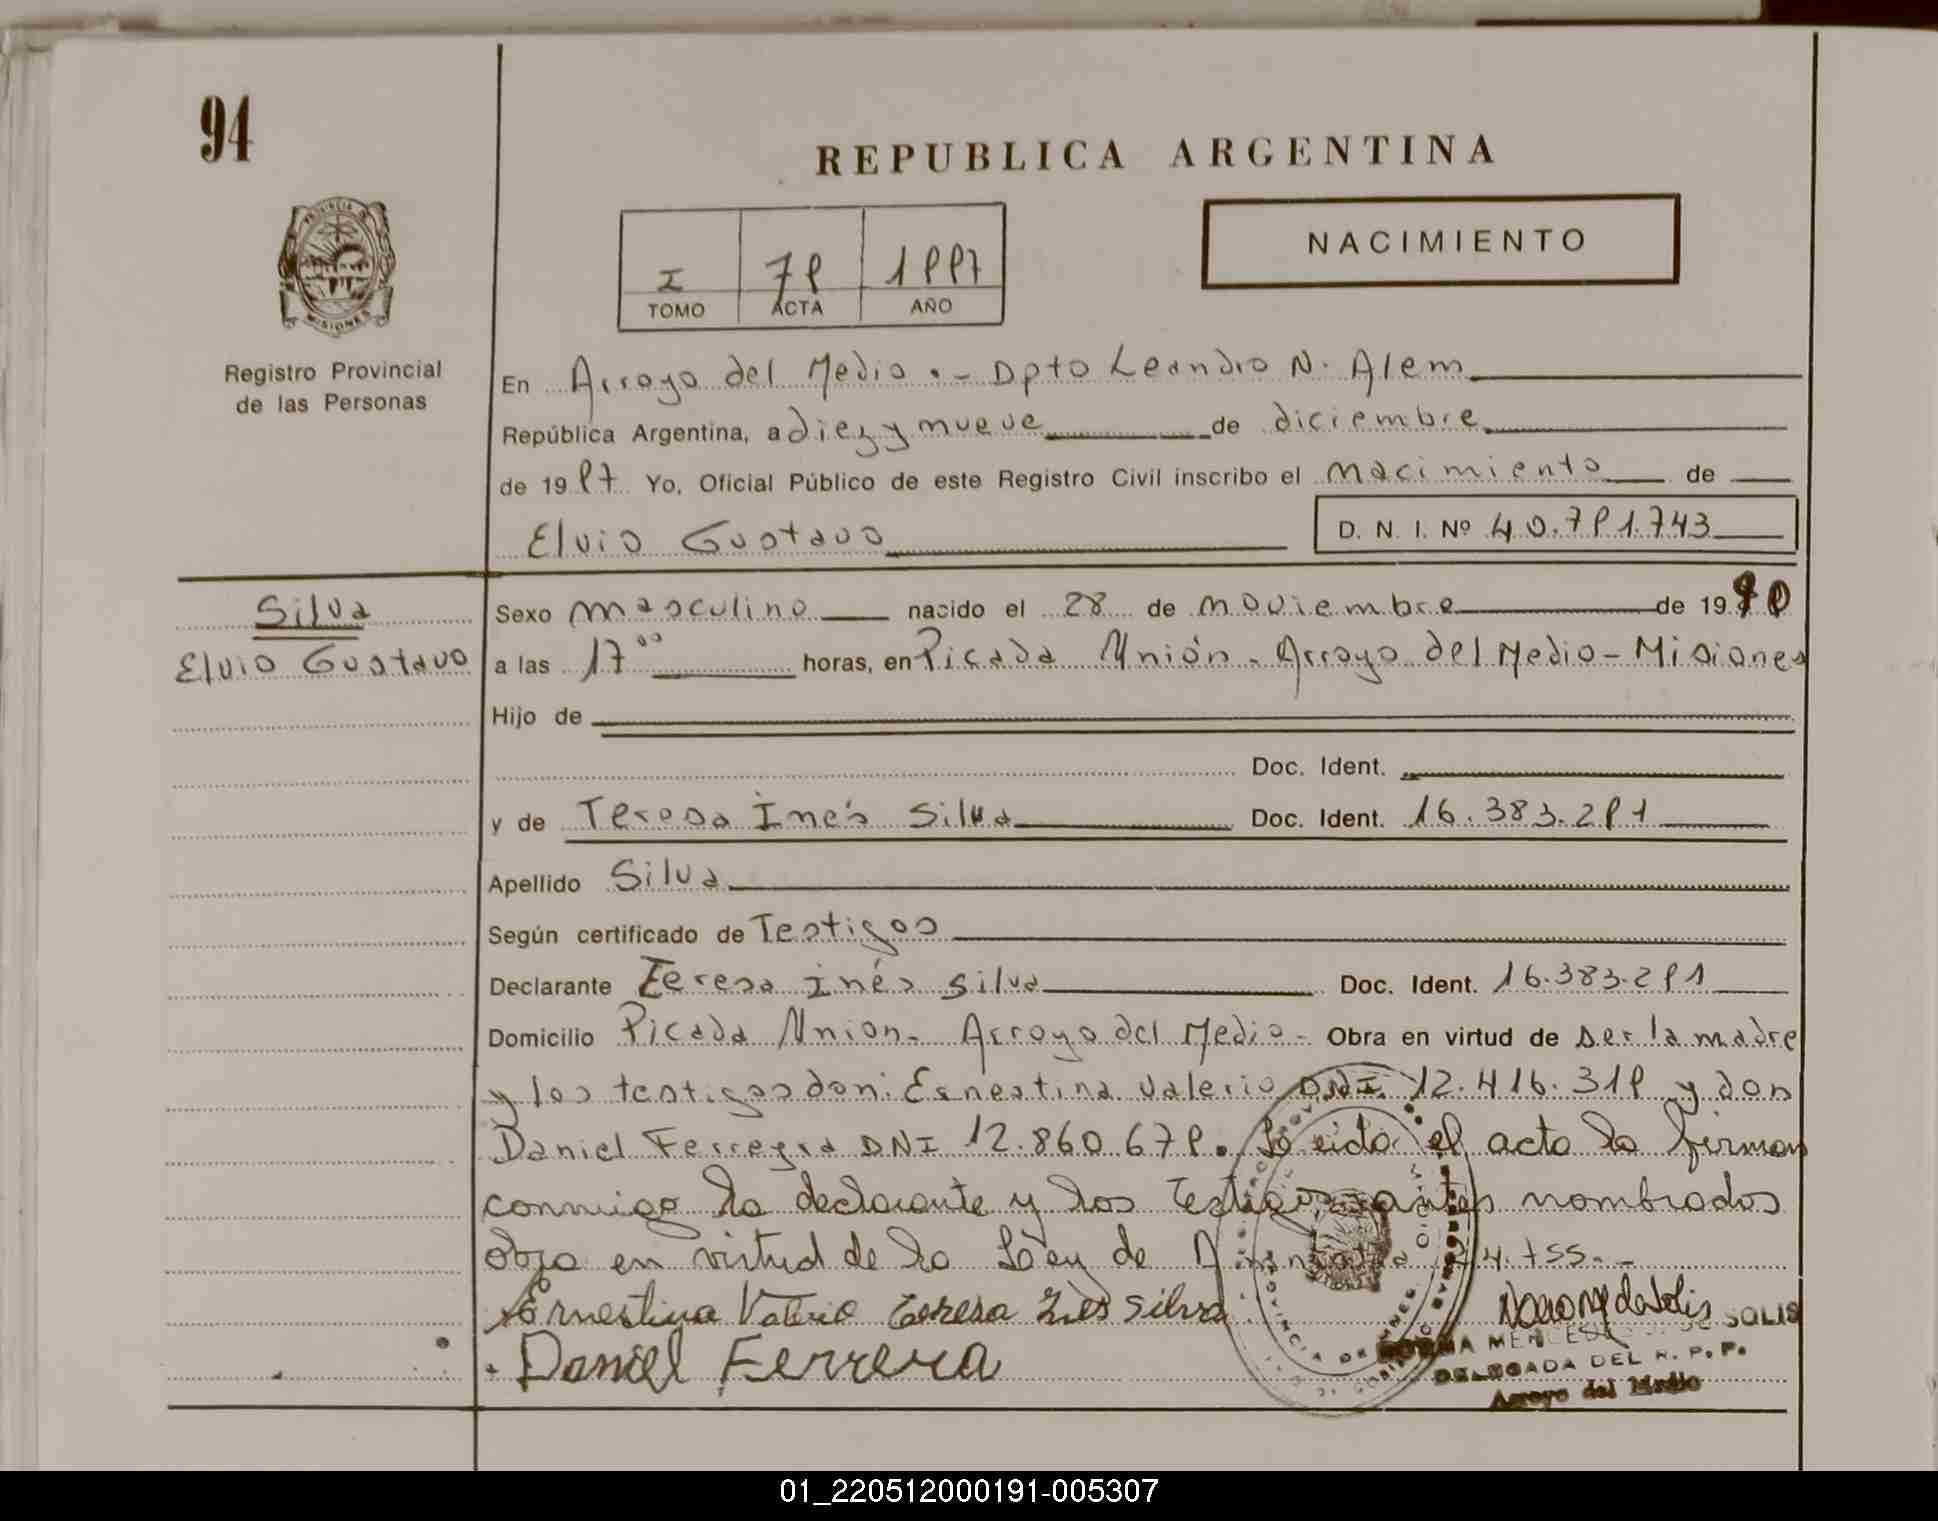 94
REPUBLICA ARGENTINA
PROVINCIA DE MISIONES
NACIMIENTO
I 79 1997
TOMO ACTA AÑO
Registro Provincial
de las Personas
En Arroyo del Medio.- Dpto Leandro N. Alem
República Argentina, a diez y nueve de diciembre
de 1997 Yo, Oficial Público de este Registro Civil inscribo el nacimiento de
Elvio Gustavo D. N. I. Nº 40.791.743
Silva
Elvio Gustavo
Sexo masculino nacido el 28 de noviembre de 19
a las 17 00 horas, en Picada Unión - Arroyo del Medio - Misiones
Hijo de
Doc. Ident.
y de Teresa Inés Silva Doc. Ident. 16.383.291
Apellido Silva
Según certificado de Testigos
Declarante Teresa Inés Silva Doc. Ident. 16.383.291
Domicilio Picada Union - Arroyo del Medio - Obra en virtud de ser la madre
y los testigos don: Ernestina Valerio DNI 12.416.319 y don
Daniel Ferreyra DNI 12.860.679. Leida el acta la firman
conmigo la declarante y los testigos antes nombrados
obra en virtud de la Ley de 24.755.-
Ernestina Valerio Teresa Inés Silva
Daniel Ferrera
NORMA MERCEDES DE SOLIS
DELEGADA DEL R. P. P.
Arroyo del Medio
01_220512000191-005307